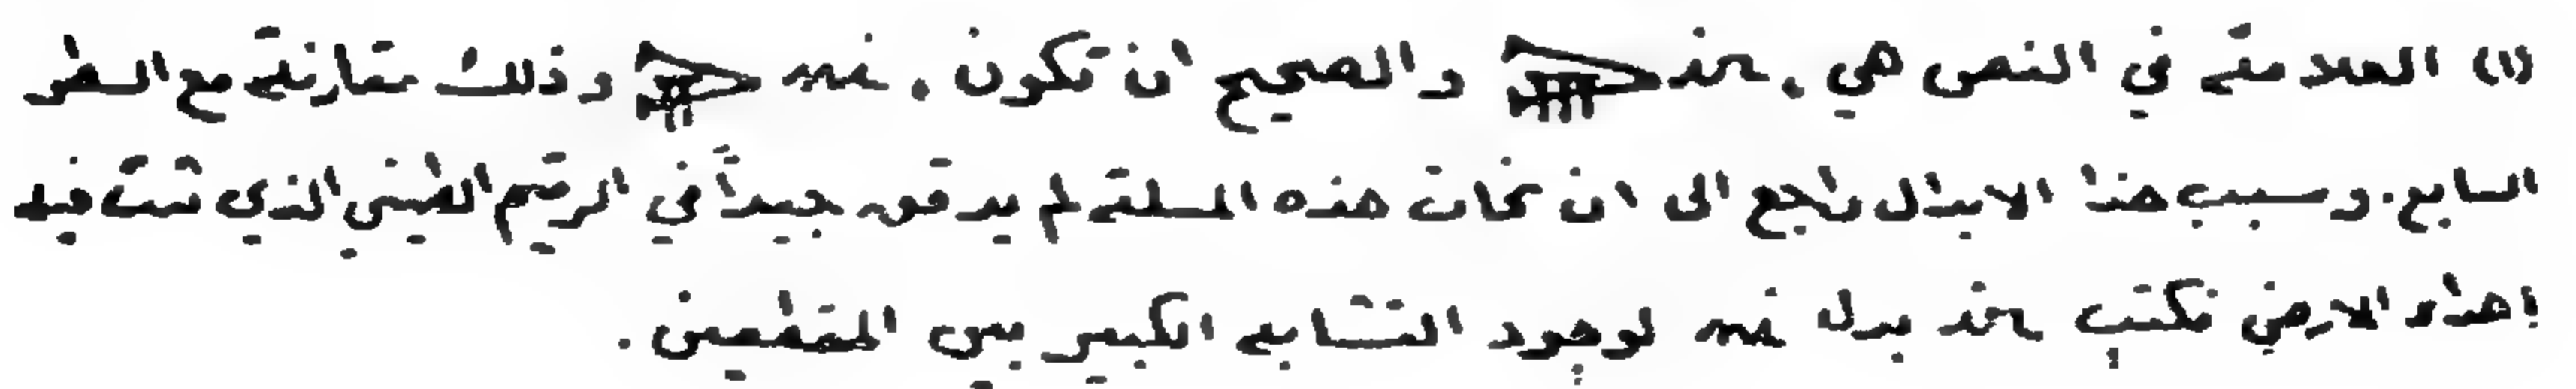 (١) العلامة في النص هي . خذ والصحيح ان تكون . غنہ وذلك مقارنة مع السطر
السابع . وسبب هذا الابدال راجع الى ان نحات هذه المسلة لم يدقق جيداً في الرقيم الطيني الذي ثبت فيه
اهداء الارض فكتب بدل لوجود التشابه الكبير بين المقطعين .